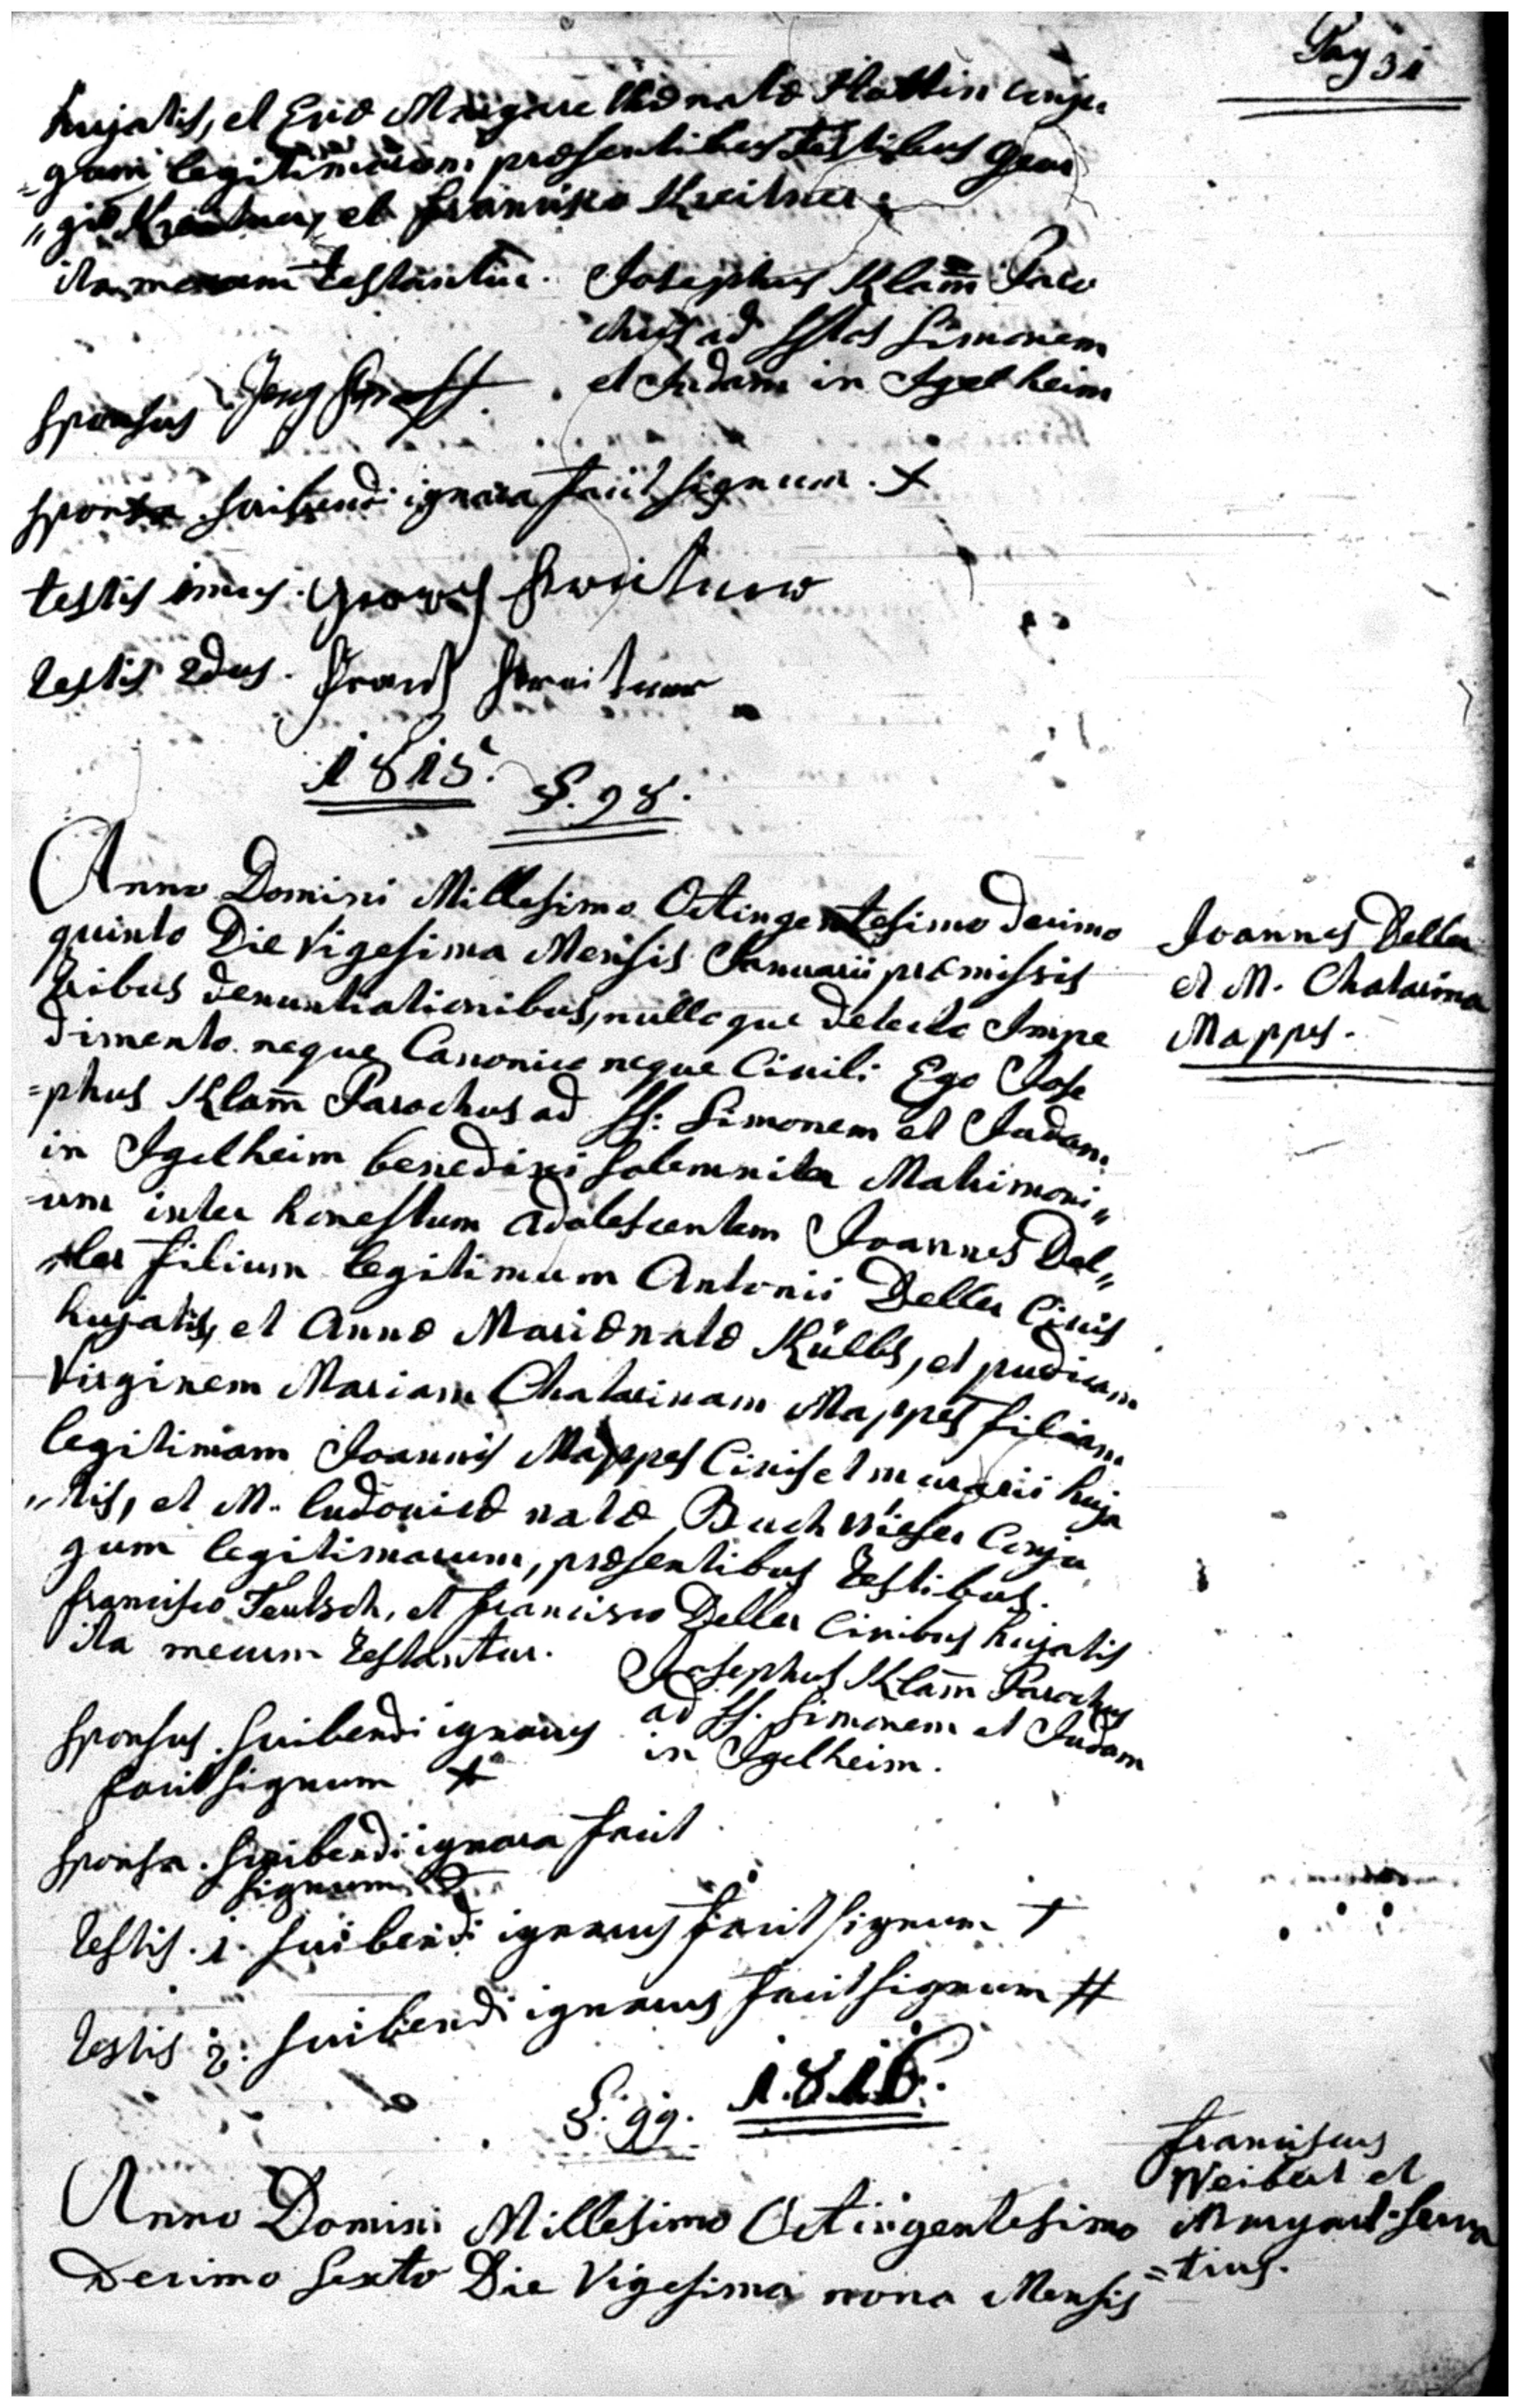 Pag 31
hujatis, et Evæ Margare thæ natæ Hattin conju
=gum legitimorum præsentibus Testibus Geor
"gio Kreitner, et Francisco Kreitner.
ita mecum testantur. Josephus Klam̄ Paro
chus ad SStos Simonem
et Judam in Igelheim
Sponsus
sponsa scribendi ignara facit signum. +
testis 1mus. Georg Kreitner
testis 2dus. Frantz Kreitner
1815. §. 98.
Anno Domini Millesimo Octingentesimo decimo
quinto Die Vigesima Mensis Januarii præmissis
tribus denuntiationibus, nulloque detecto Impe
dimento neque Canonico neque Civili Ego Jose
=phus Klam̄ Parochus ad SS: Simonem et Judam
in Igelheim benedixi solemniter Matrimoni"
=um inter honestum adolescentem Joannes Del"
"ler filium legitimum Antonii Deller Civis
hujatis, et Annæ Mariæ natæ Külbs, et pudicam
Virginem Mariam Chatarinam Mappes filiam
legitimam Joannis Mappes Civis et murarii huja
"tis, et M. ludovicæ natæ Buchwieser Conju
gum legitimorum, præsentibus Testibus.
Francisco Teutsch, et Francisco Deller Civibus hujatis
ita mecum Testantur. Josephus Klam̄ Parochus
ad SS. Simonem et Judam
in Igelheim.
Sponsus. scribendi ignarus
facit signum +
Sponsa. scribendi ignara facit
signum
Testis. 1. scribendi ignarus facit signum +
Testis 2. scribendi ignarus facit signum #
Joannes Deller
et M. Chatarina
Mappes.
§. 99. 1816.
Anno Domini Millesimo Octingentesimo
Decimo Sexto Die Vigesima nona Mensis
Franciscus
Weibert et
Margaret. Serva
=tius.